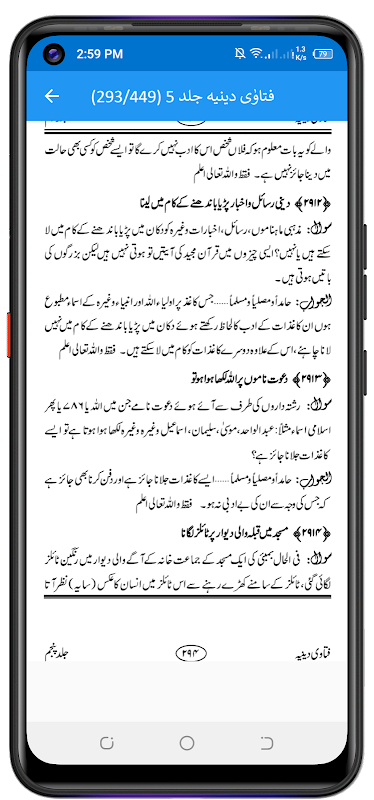 2:59 PM
1.3
K/s
79
فتاوٰی دینیه جلد 5 (293/449)
والے کو یہ بات معلوم ہو کہ فلاں شخص اس کا ادب نہیں کرے گا تو ایسے شخص کو کسی بھی حالت
میں دینا جائز نہیں ہے۔ فقط واللہ تعالی اعلم
﴿۲۹۱۲﴾ دینی رسائل و اخبار پڑیا باندھنے کے کام میں لینا
سوال: مذہبی ماہناموں، رسائل، اخبارات وغیرہ کو دکان میں پڑیا باندھنے کے کام میں لا
سکتے ہیں یا نہیں؟ ایسی چیزوں میں قرآن مجید کی آیتیں تو ہوتی نہیں ہیں لیکن بزرگوں کی
باتیں ہوتی ہیں۔
الجواب: حامداً ومصلیاً ومسلماً...... جس کاغذ پر اولیاء اللہ اور انبیاء وغیرہ کے اسماء مطبوع
ہوں ان کاغذات کے ادب کا لحاظ رکھتے ہوئے دکان میں پڑیا باندھنے کے کام میں نہیں
لانا چاہئے، اس کے علاوہ دوسرے کاغذات کو کام میں لا سکتے ہیں۔ فقط واللہ تعالی اعلم
﴿۲۹۱۳﴾ دعوت ناموں پر اللہ لکھا ہوا ہو تو
سوال: رشتہ داروں کی طرف سے آئے ہوئے دعوت نامے جن میں اللہ یا ۷۸۶ یا پھر
اسلامی اسماء مثلاً: عبد الواحد، موسیٰ، سلیمان، اسماعیل وغیرہ وغیرہ لکھا ہوا ہوتا ہے تو ایسے
کاغذات جلانا جائز ہے؟
الجواب: حامداً ومصلیاً ومسلماً...... ایسے کاغذات جلانا جائز ہے اور دفن کرنا بھی جائز ہے
کہ جس کی وجہ سے ان کی بے ادبی نہ ہو۔ فقط واللہ تعالی اعلم
﴿۲۹۱۴﴾ مسجد میں قبلہ والی دیوار پر ٹائلز لگانا
سوال: فی الحال بمبئی کی ایک مسجد کے جماعت خانہ کے آگے والی دیوار میں رنگین ٹائلز
لگائی گئی، ٹائلز کے سامنے کھڑے رہنے سے اس ٹائلز میں انسان کا عکس (سایہ) نظر آتا
فتاوی دینیہ ۲۹۴ جلد پنجم